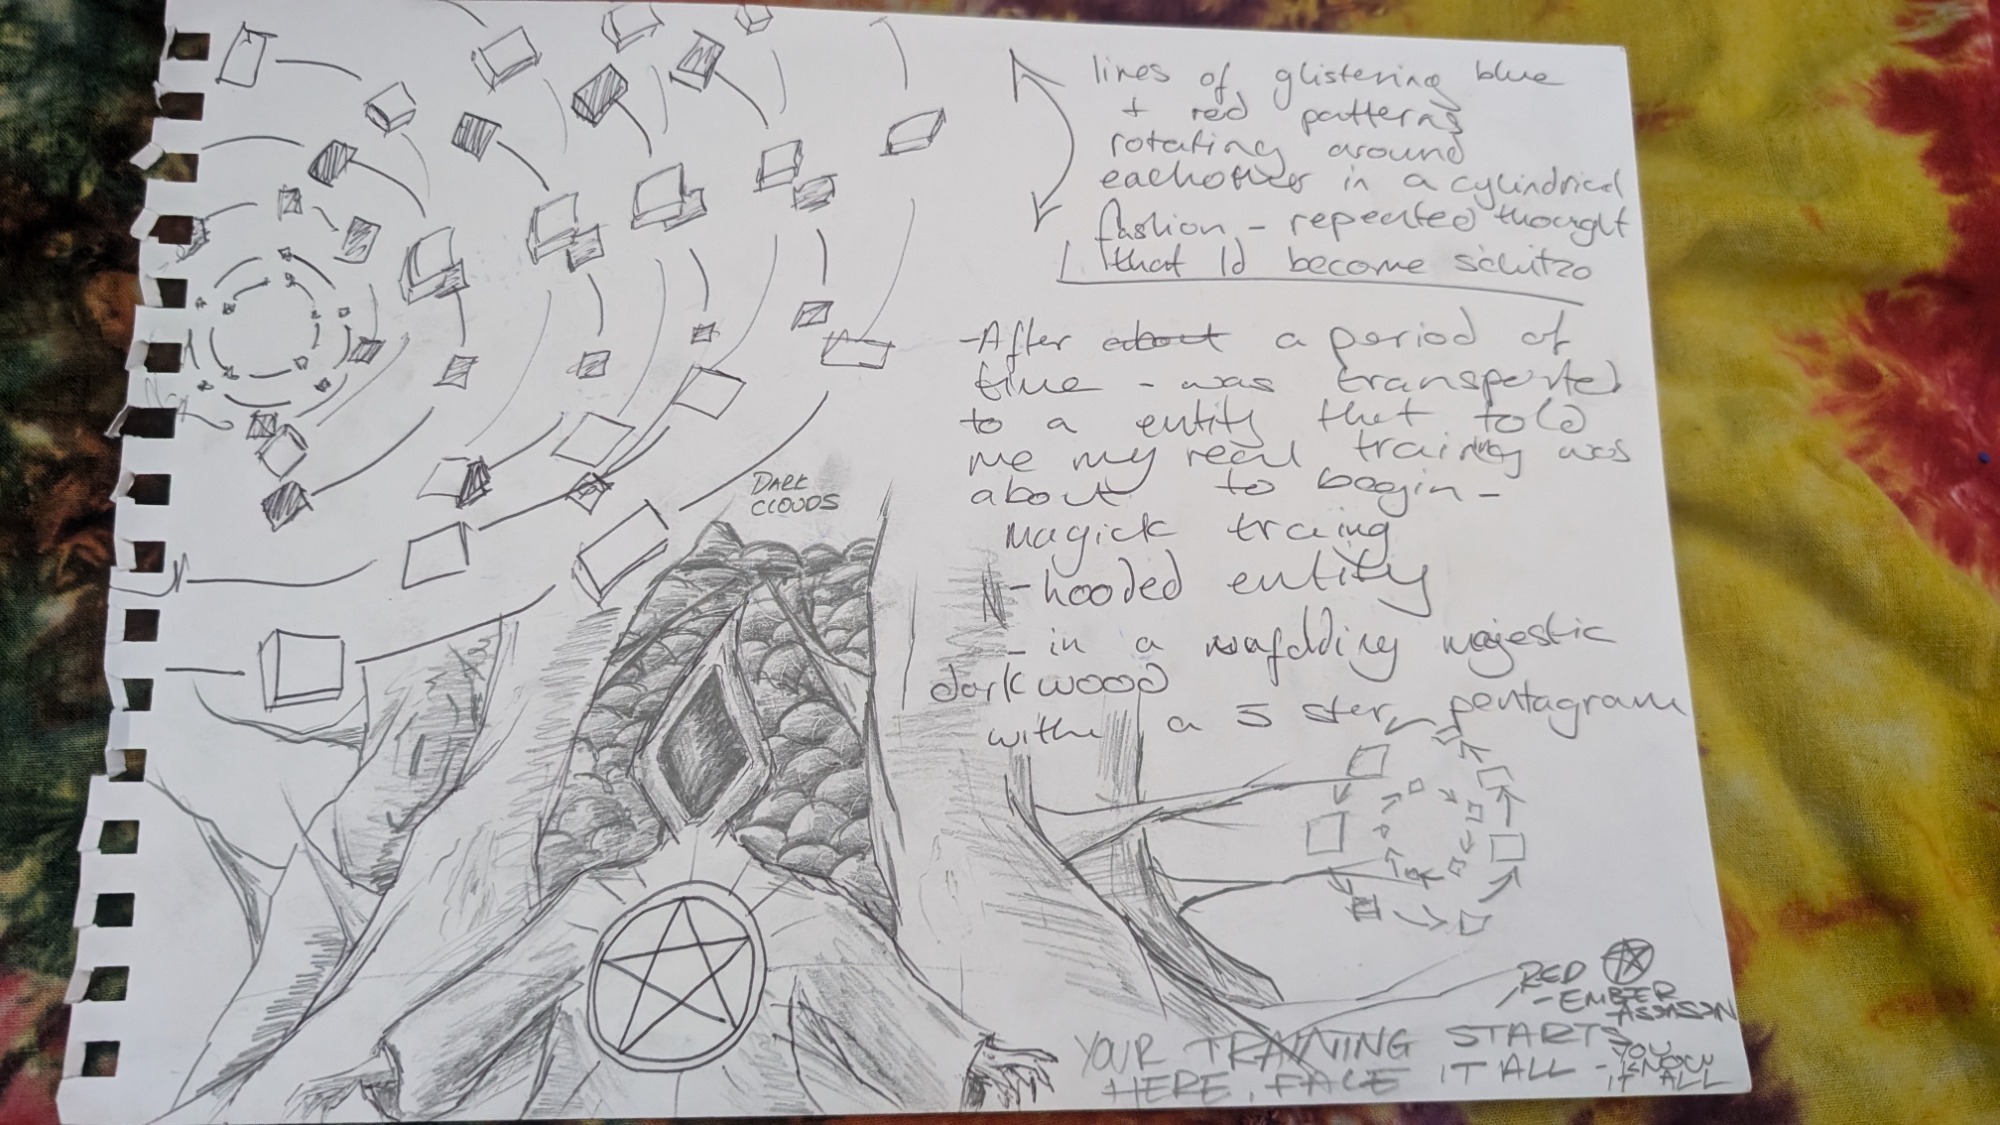 lines of glistening blue
+ red patterns
rotating around
eachother in a cylindrical
fashion - repeated thought
that Id become schitzo
-After about a period of
time - was transported
to a entity that told
me my real training was
about to begin -
magick traing
- hooded entity
- in a majestic
dark wood
with a 5 star pentagram
DARK
CLOUDS
RED
- EMBER
ASASSAN
YOUR TRAINING STARTS
HERE. FACE IT ALL - YOU
KNOW
IT ALL